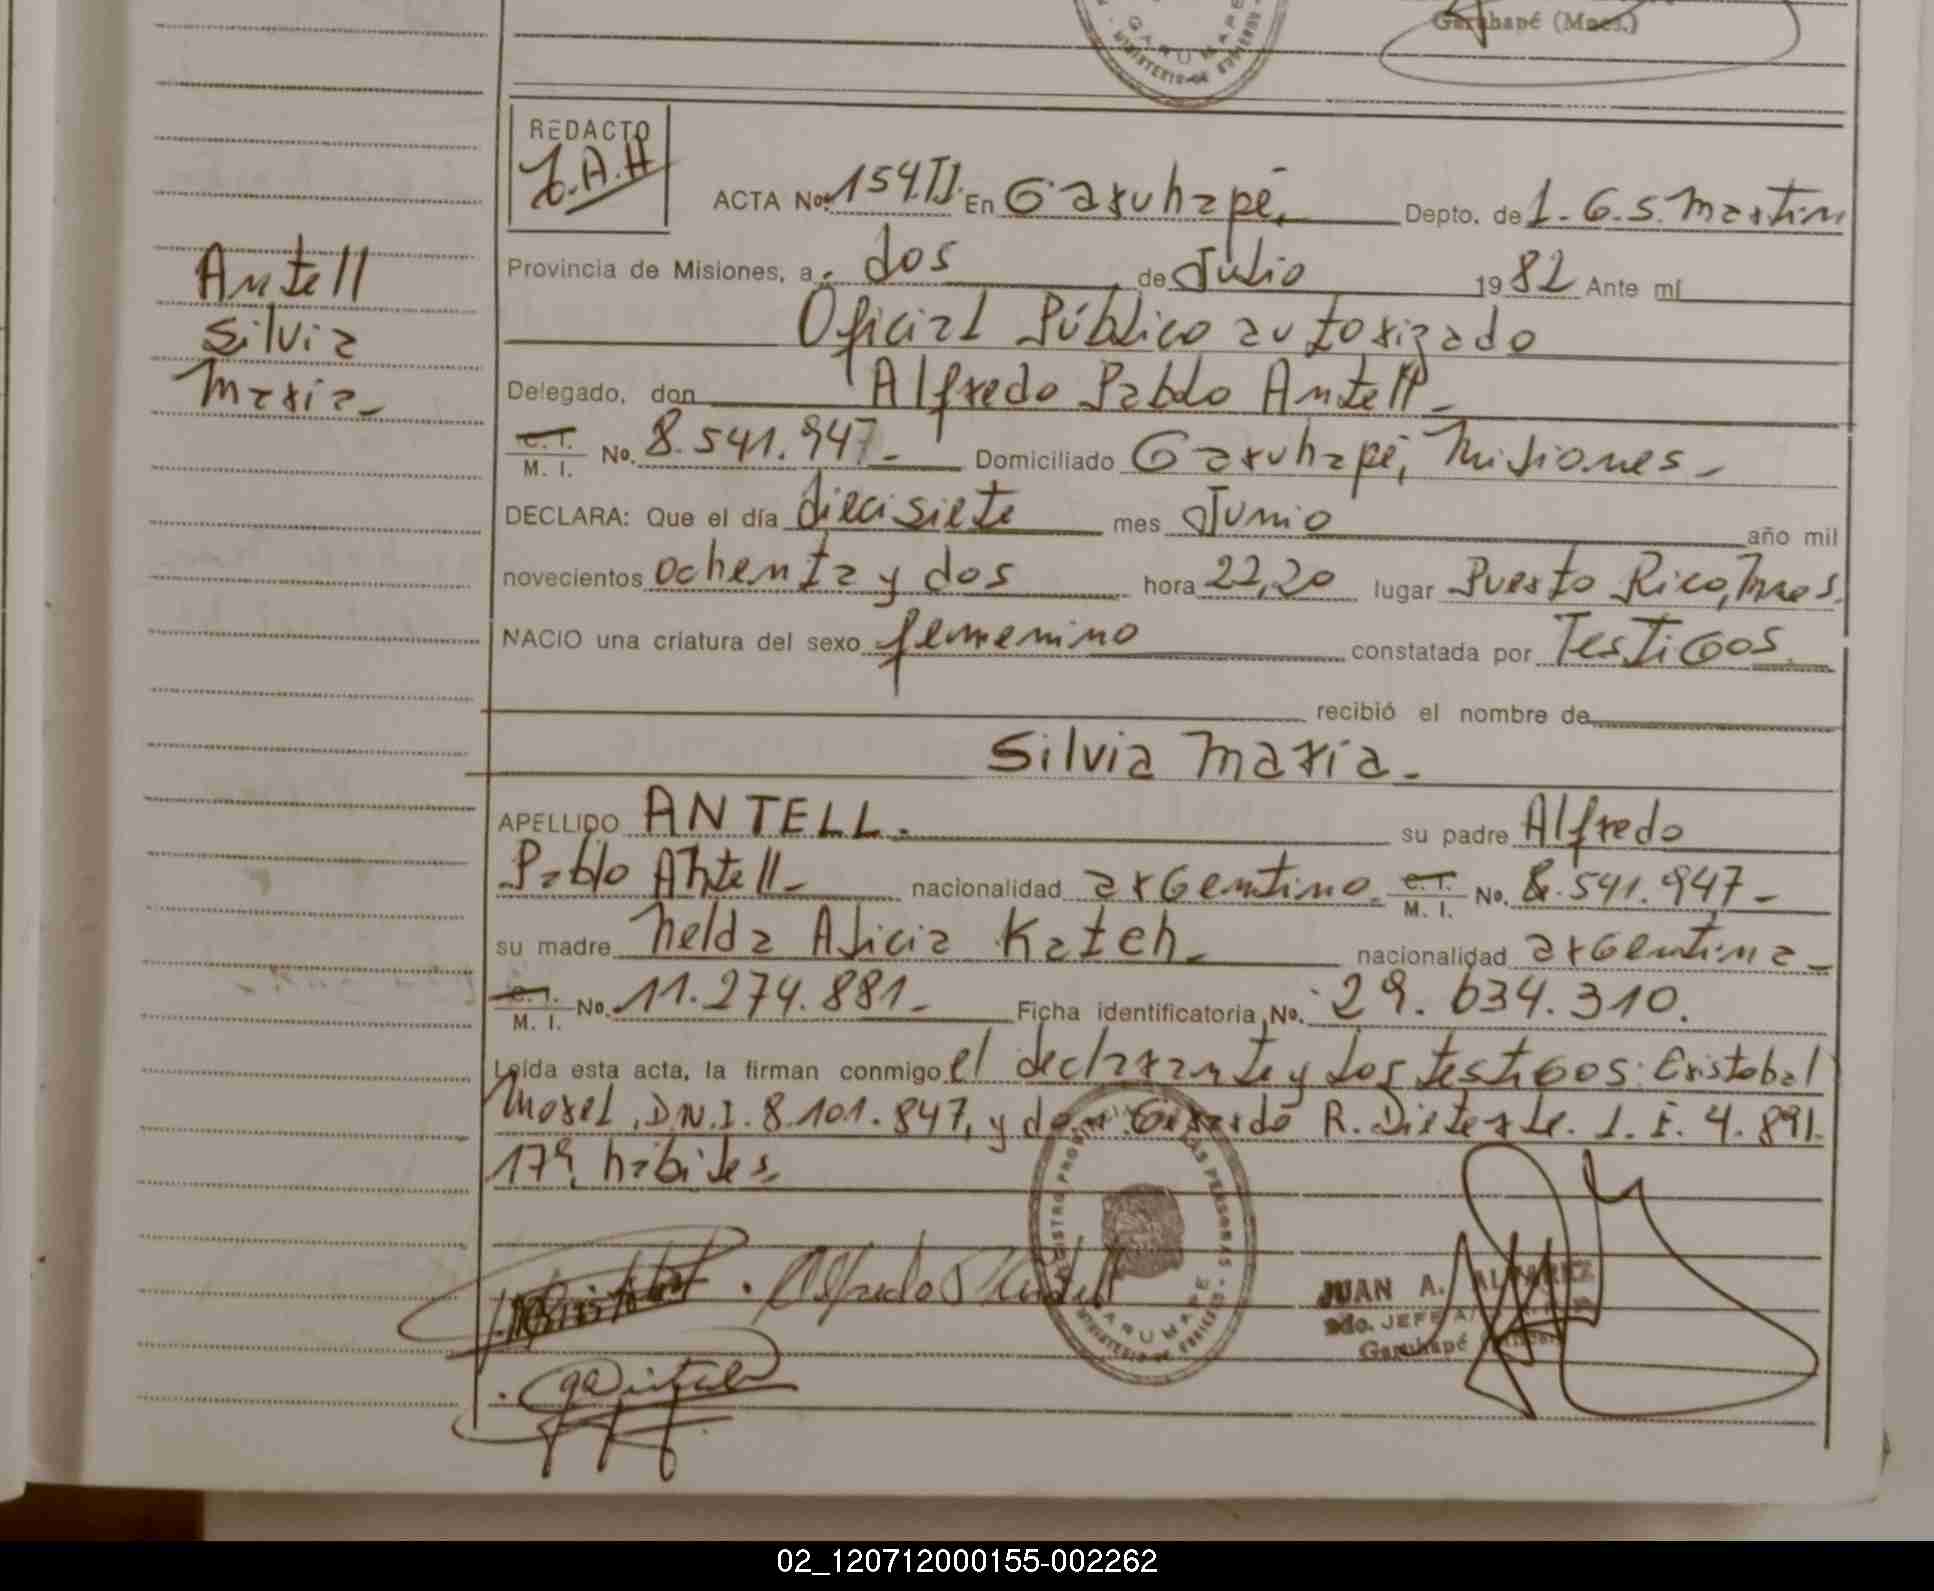 GARUHAPE
MINISTERIO DE GOBIERNO
Garuhapé (Mnes.)
REDACTO
J.A.A
ACTA No. 154.TI. En Garuhapé, Depto. de L. G. S. Martin
Provincia de Misiones, a dos de Julio 1982 Ante mí
Oficial Público autorizado
Antell
Silvia
Maria
Delegado, don Alfredo Pablo Antell
C. I. M. I. No. 8.541.947 Domiciliado Garuhapé, Misiones
DECLARA: Que el día diecisiete mes Junio año mil
novecientos ochenta y dos hora 22,20 lugar Puerto Rico, Mnes.
NACIO una criatura del sexo femenino constatada por Testigos
recibió el nombre de
Silvia Maria
APELLIDO ANTELL. su padre Alfredo
Pablo Antell nacionalidad argentino C. I. M. I. No. 8.541.947
su madre Nelda Alicia Kateh nacionalidad argentina
C. I. M. I. No. 11.274.881 Ficha identificatoria No. 29.634.310.
Leída esta acta, la firman conmigo el declarante y los testigos: Cristobal
Morel, D.N.I. 8.101.847, y don Gerardo R. Dieterle. L. E. 4.891.
179, hábiles.
REGISTRO PROVINCIAL DE LAS PERSONAS
GARUHAPE
MINISTERIO DE GOBIERNO
Alfredo P Antell
JUAN A. ALVAREZ
JEFE
Garuhapé
02_120712000155-002262